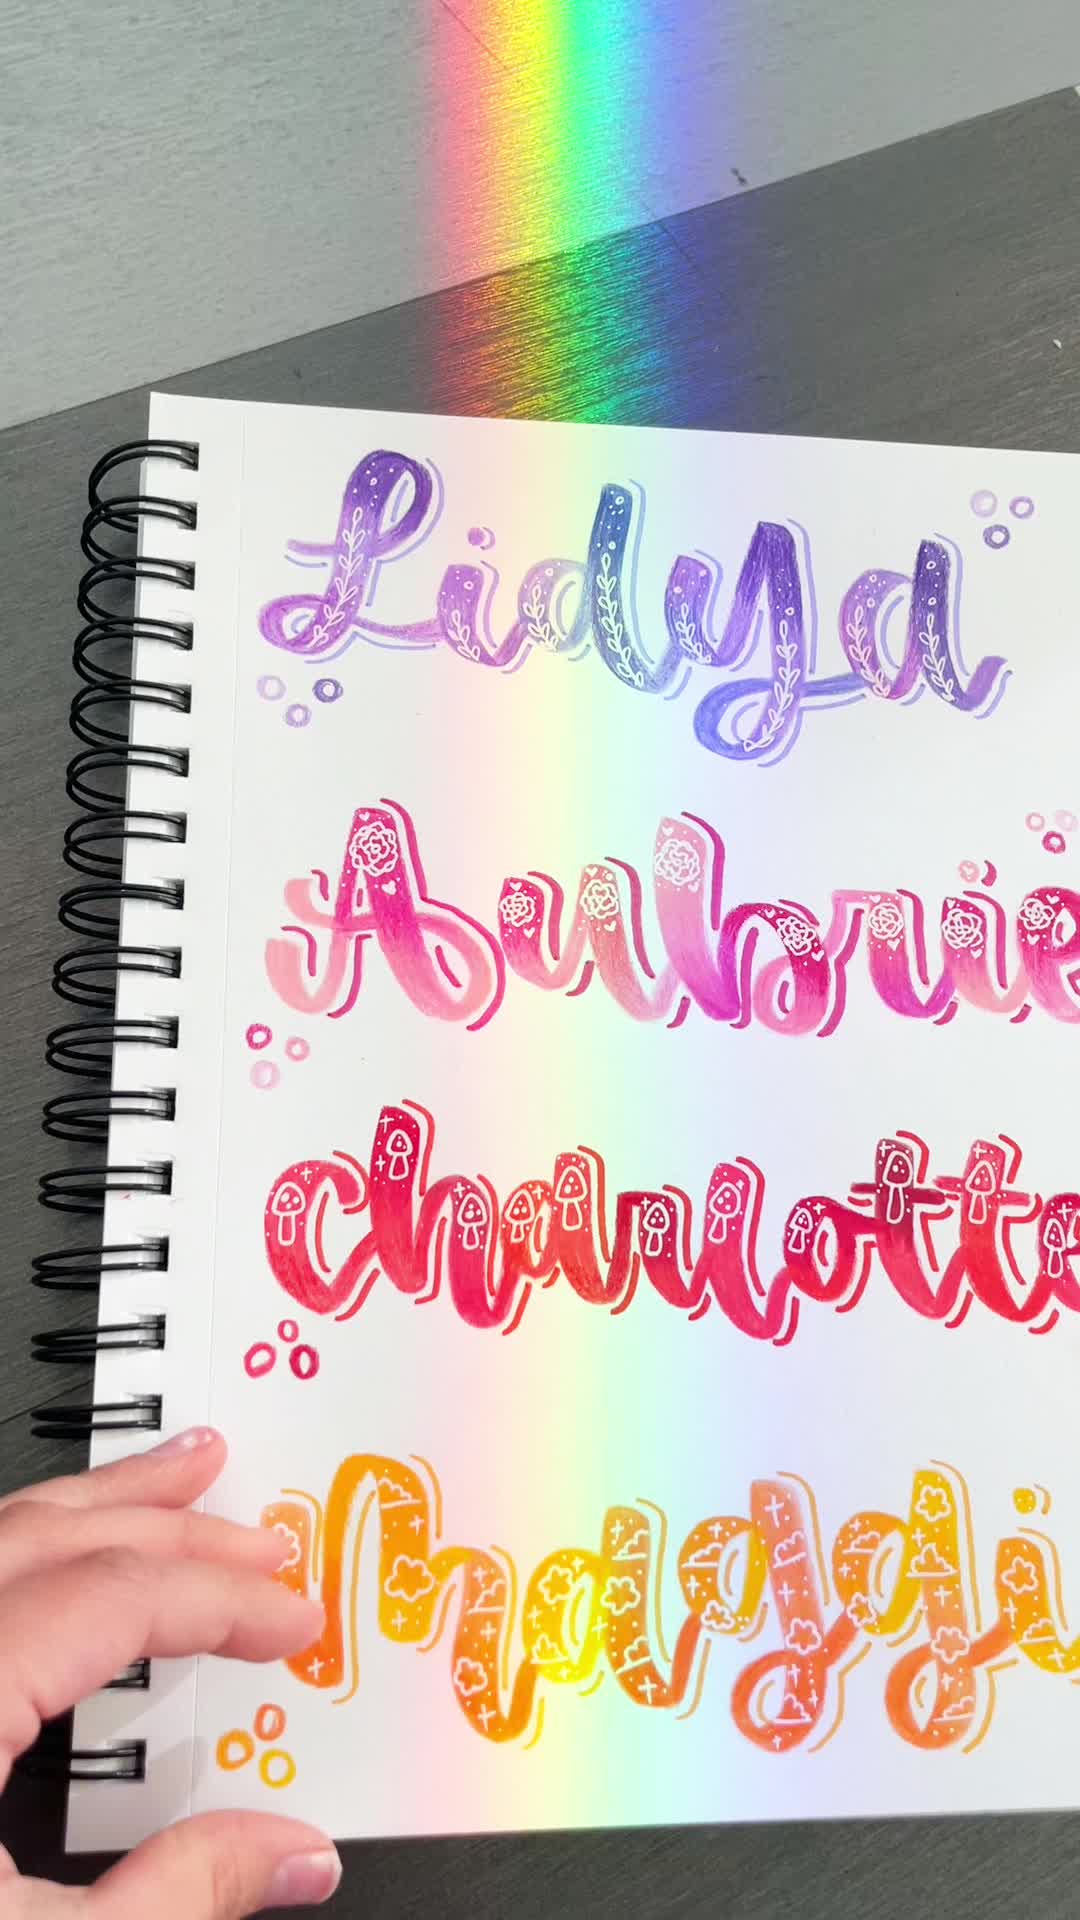 Lidya
Aubrie
Charlotte
Maggi